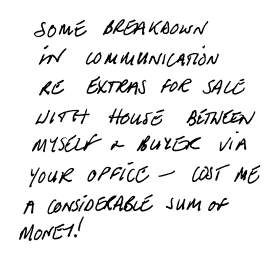 SOME BREAKDOWN
IN COMMUNICATION
RE EXTRAS FOR SALE
WITH HOUSE BETWEEN
MYSELF & BUYER VIA
YOUR OFFICE – COST ME
A CONSIDERABLE SUM OF
MONEY!